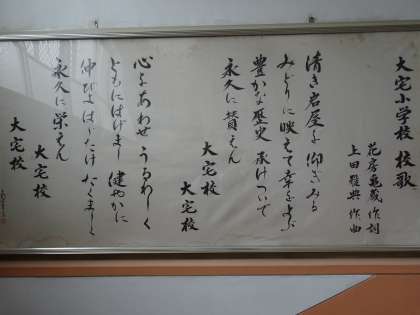 大宅小学校 校歌
花房亀蔵 作詞
上田雅典 作曲
清き岩屋を仰ぎみる
みどりに映えて幸をよぶ
豊かな歴史 承けついで
永久に賛えん
大宅校
大宅校
心をあわせ うるわしく
ともにはげまし 健やかに
伸びよはゞたけ たくましく
永久に栄えん
大宅校
大宅校